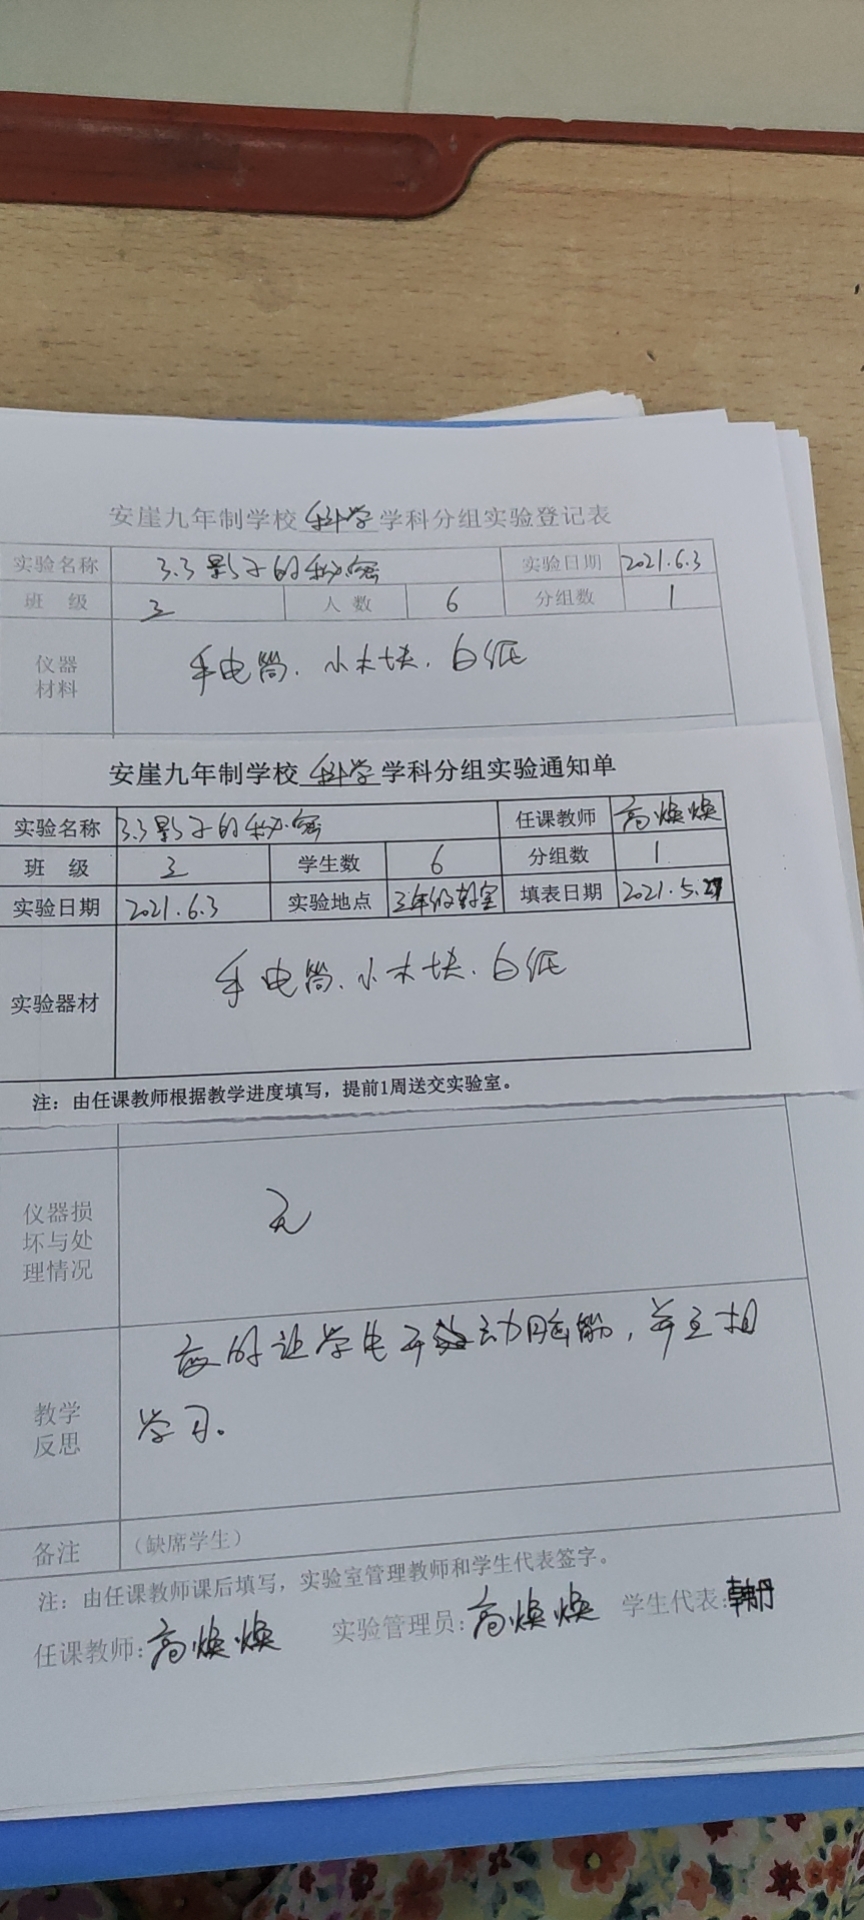 安崖九年制学校 科学 学科分组实验登记表
实验名称 3.3影子的秘密 实验日期 2021.6.3
班 级 三 人 数 6 分组数 1
仪器材料 手电筒、小木块、白纸
安崖九年制学校 科学 学科分组实验通知单
实验名称 3.3影子的秘密 任课教师 高焕焕
班 级 三 学生数 6 分组数 1
实验日期 2021.6.3 实验地点 三年级教室 填表日期 2021.5.27
实验器材 手电筒、小木块、白纸
注：由任课教师根据教学进度填写，提前1周送交实验室。
仪器损坏与处理情况 无
教学反思 让学生开动脑筋，并互相
学习。
备注 （缺席学生）
注：由任课教师课后填写，实验室管理教师和学生代表签字。
任课教师：高焕焕 实验管理员：高焕焕 学生代表：韩丹